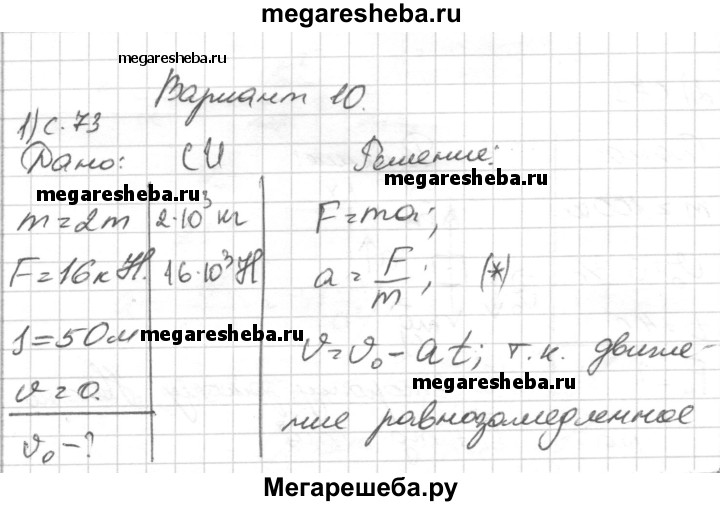 megaresheba.ru
megaresheba.ru
Вариант 10.
1) с. 73
Дано: СИ Решение:
megaresheba.ru megaresheba.ru
m = 2т 2·10³ кг F = ma;
F = 16кН. 16·10³Н a = F/m; (*)
s = 50м
megaresheba.ru
v = v₀ - at; т.к. движе-
megaresheba.ru
v = 0.
ние равнозамедленное
v₀ - ?
megaresheba.ru
Мегарешеба.ру